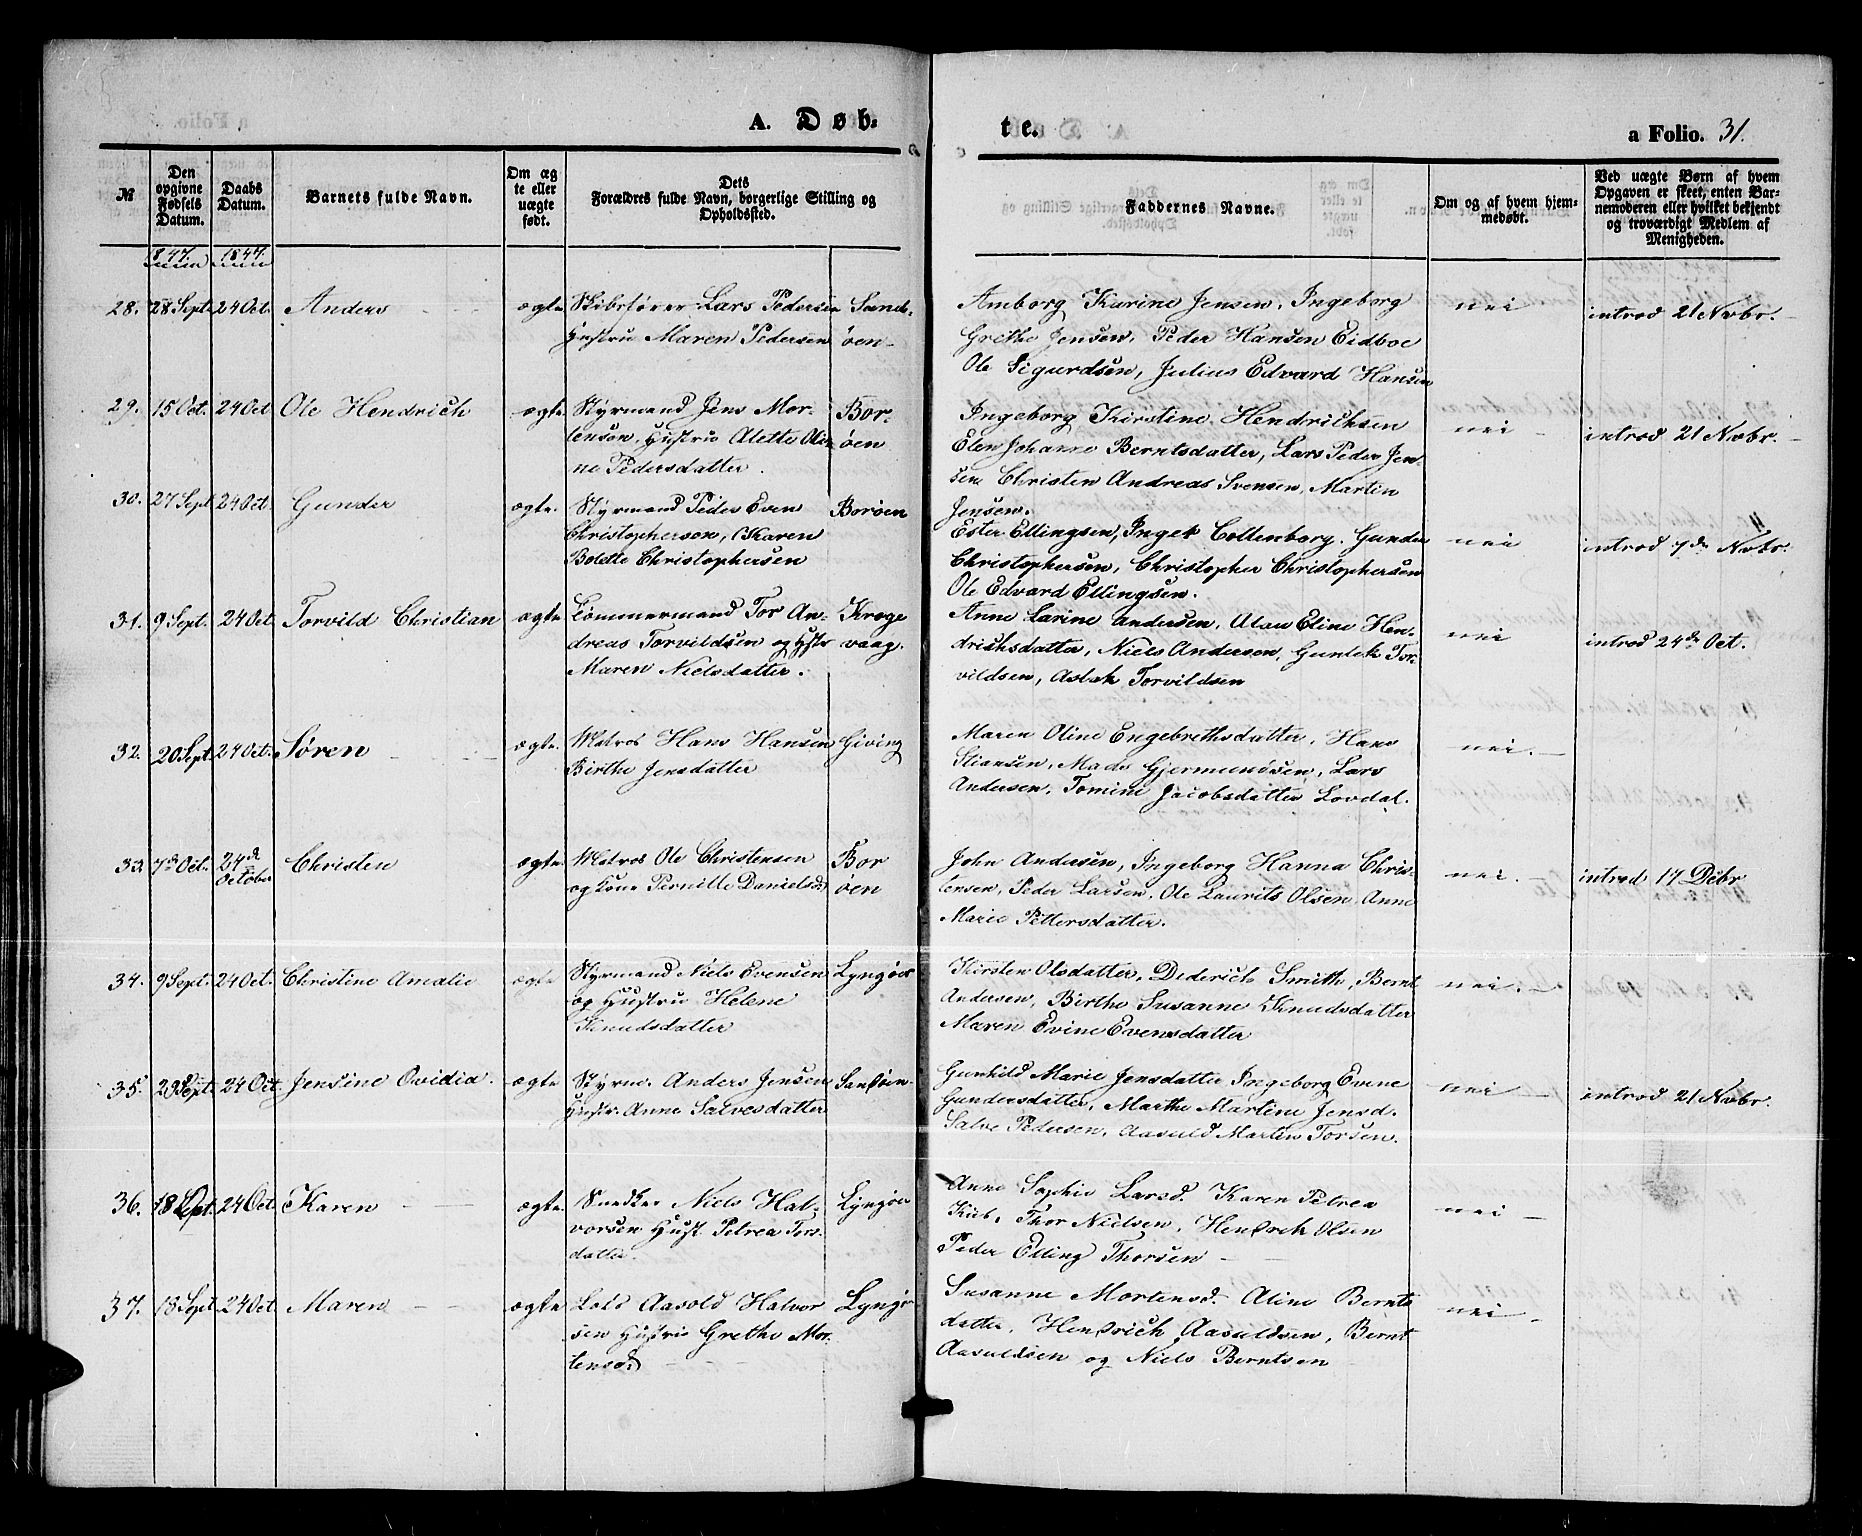 A. Døb-
te.
a Folio. 31.
№
Den opgivne Fødsels Datum.
Daabs Datum.
Barnets fulde Navn.
Om ægte eller uægte født.
Dets Forældres fulde Navn, borgerlige Stilling og Opholdssted.
Faddernes Navne.
Om og af hvem hjemmedøbt.
Ved uægte Børn af hvem Opgaven er skeet, enten Barnemoderen eller hvilket bekjendt og troværdigt Medlem af Menigheden.
1847. 1847.
28. 28 Sept. 24 Oct. Anders ægte Skibsfører Lars Pedersen Sand- Amborg Karine Jensen, Ingeborg nei introd 21 Novbr.
Hustru Maren Pedersen øen Grethe Jensen, Peder Hansen Eidboe
Ole Sigurdsen, Julius Edvard Hansen
29. 15 Oct. 24 Oct Ole Hendrich ægte Styrmand Jens Mor- Bor- Ingeborg Kirstine Hendrichsen nei introd 21 Novbr.
tensen, Hustru Alette Olin øen Elen Johanne Berntsdatter, Lars Peder Jen-
ne Pedersdatter. sen Christen Andreas Svensen, Martin
Jensen.
30. 27 Sept 24 Oct. Gunder ægte. Styrmand Peder Even Borøen Ester Ellingsen, Inger Coltenborg. Gunder nei introd 7de Novbr.
Christopherson, Karen Christophersen, Christopher Christophersen
Bolette Christophersen Ole Edvard Ellingsen.
31. 9 Sept. 24 Oct. Torvild Christian ægte Tømmermand Tor An- Krage Anne Larine Andersen, Eline Hen- nei introd 24de Oct.
dreas Torvildsen og Hstr vaag. drichsdatter, Niels Andersen, Gunlek Tor-
Maren Nielsdatter. vildsen, Asbek Torvildsen
32. 20 Sept. 24 Oct. Søren ægte. Matros Hans Hansen Giving Maren Oline Engebrethsdatter, Hans nei.
Birthe Jensdatter Stiansen, Mads Gjermundsen, Lars
Andersen, Tomine Jacobsdatter Lovdal.
33. 7de Oct. 24de October Christen ægte Matros Ole Christensen Bor John Andersen, Ingeborg Hanna Chris- nei. introd 17 Debr
og Kone Pernille Danielsd. øen tensen, Peder Larsen, Ole Laurits Olsen, Anne
Marie Pettersdatter.
34. 9 Sept. 24 Oct. Christine Amalie ægte Styrmand Niels Evensen Lyngøer Kirsten Olsdatter, Diderich Smith, Bernt nei.
og Hustru Helene Andersen, Birthe Susanne Knudsdatter
Knudsdatter Maren Evine Evensdatter
35. 29 Sept. 24 Oct. Jensine Ovidia. ægte Styrm. Anders Jensen Sandøen Gunhild Marie Jensdatter Ingeborg Evine nei introd 21 Novbr.
Hustr. Anne Salvesdatter Gundersdatter, Marthe Martine Jensd.
Salve Pedersen, Aasuld Martin Torsen.
36. 18 Sept. 24 Oct. Karen ægte. Snedker Niels Hal- Lyngøer Anne Sophie Larsd. Karen Petrea nei
vorsen Hust. Petrea Tors- Thor Nielsen, Hendrich Olsen
datter. Peder Elling Thorsen
37. 18 Sept. 24 Oct. Maren ægte Lods Aasold Halvor Lyngør Susanne Mortensd. Aline Bernts nei
sen Hustru Grethe Mor- datter, Hendrich Aasuldsen, Bernt
tensd. Aasuldsen og Niels Berntsen